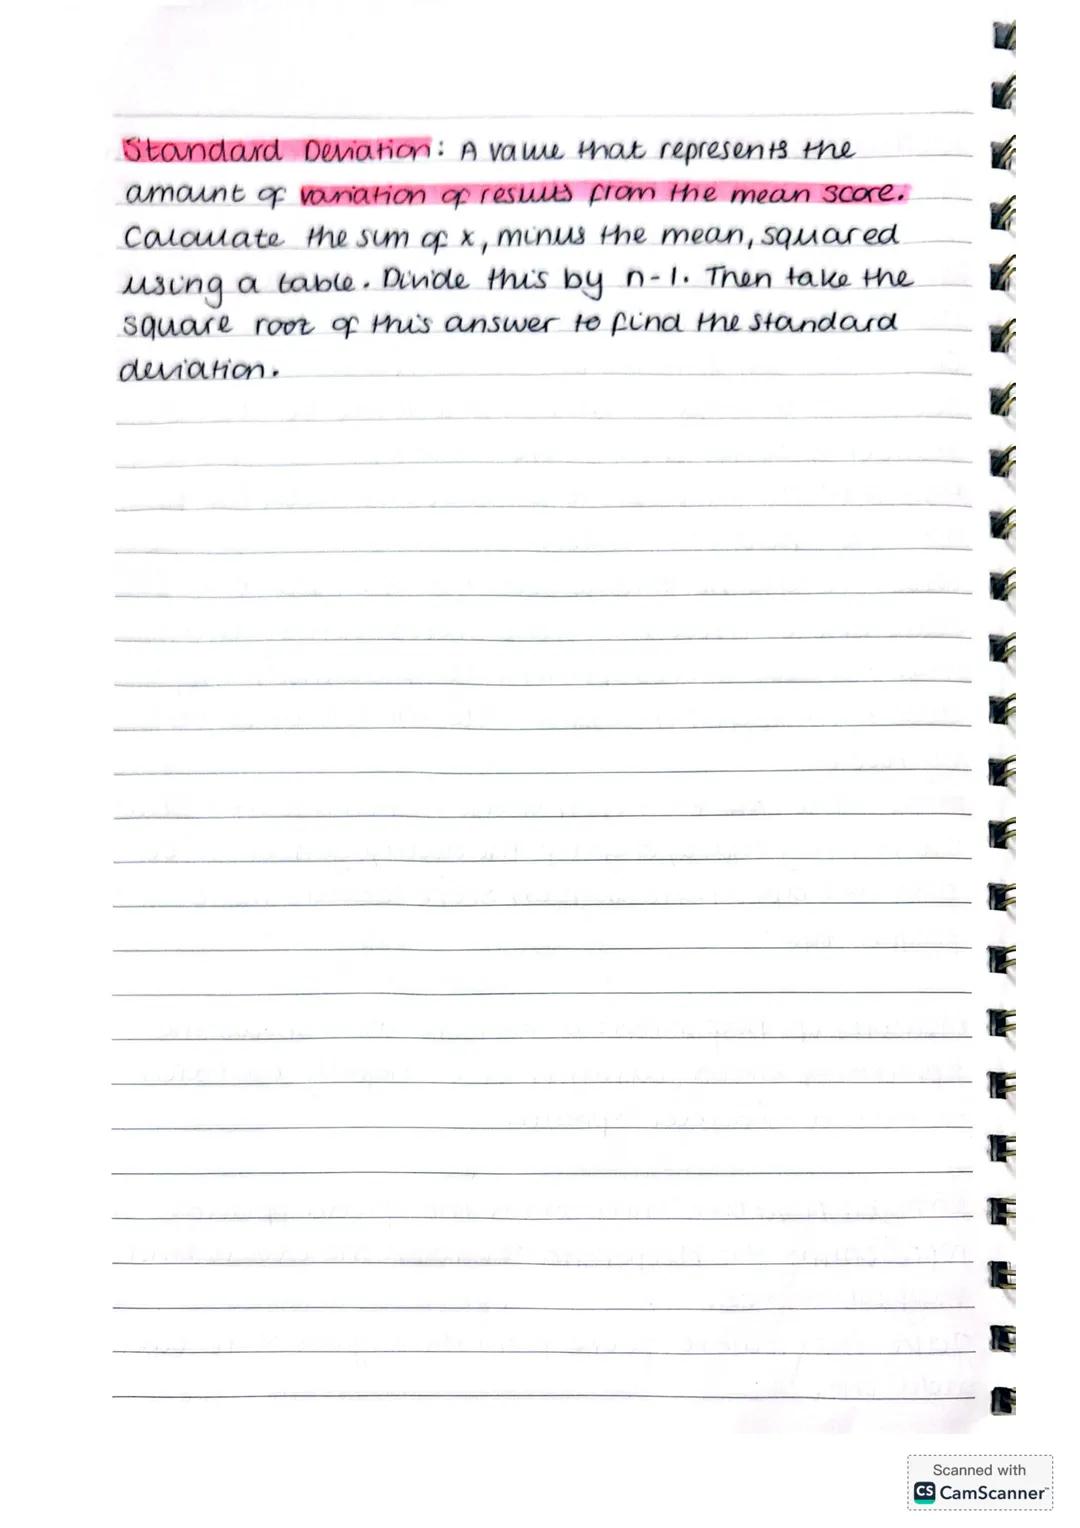 Standard Deviation: A value that represents the
amount of variation of results from the mean score.
Calculate the sum of x, minus the mean, squared
using a table. Divide this by n-1. Then take the
square root of this answer to find the standard
deviation.
Scanned with
CS CamScanner